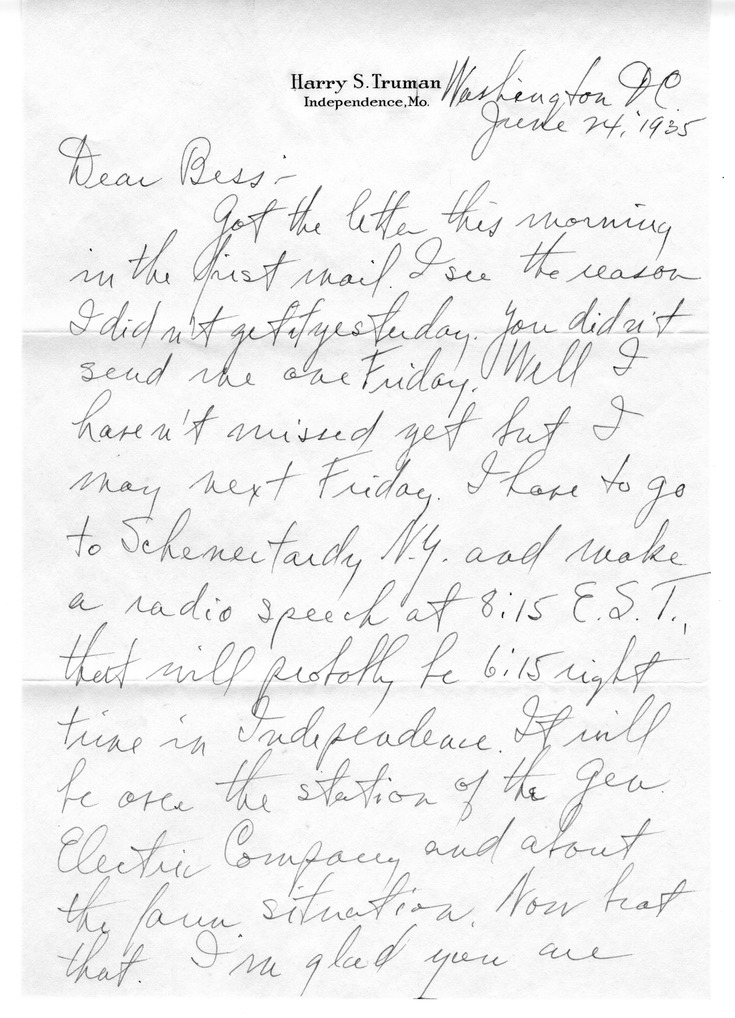 Harry S. Truman
Independence, Mo.
Washington DC
June 24, 1935
Dear Bess:-
Got the letter this morning
in the first mail. I see the reason
I didn't get it yesterday. You didn't
send me one Friday. Well I
haven't missed yet but I
may next Friday. I have to go
to Schenectardy N.Y. and make
a radio speech at 8:15 E.S.T.,
that will probally be 6:15 right
time in Independence. It will
be over the station of the Gen.
Electric Company and about
the farm situation. Now beat
that. I'm glad you are